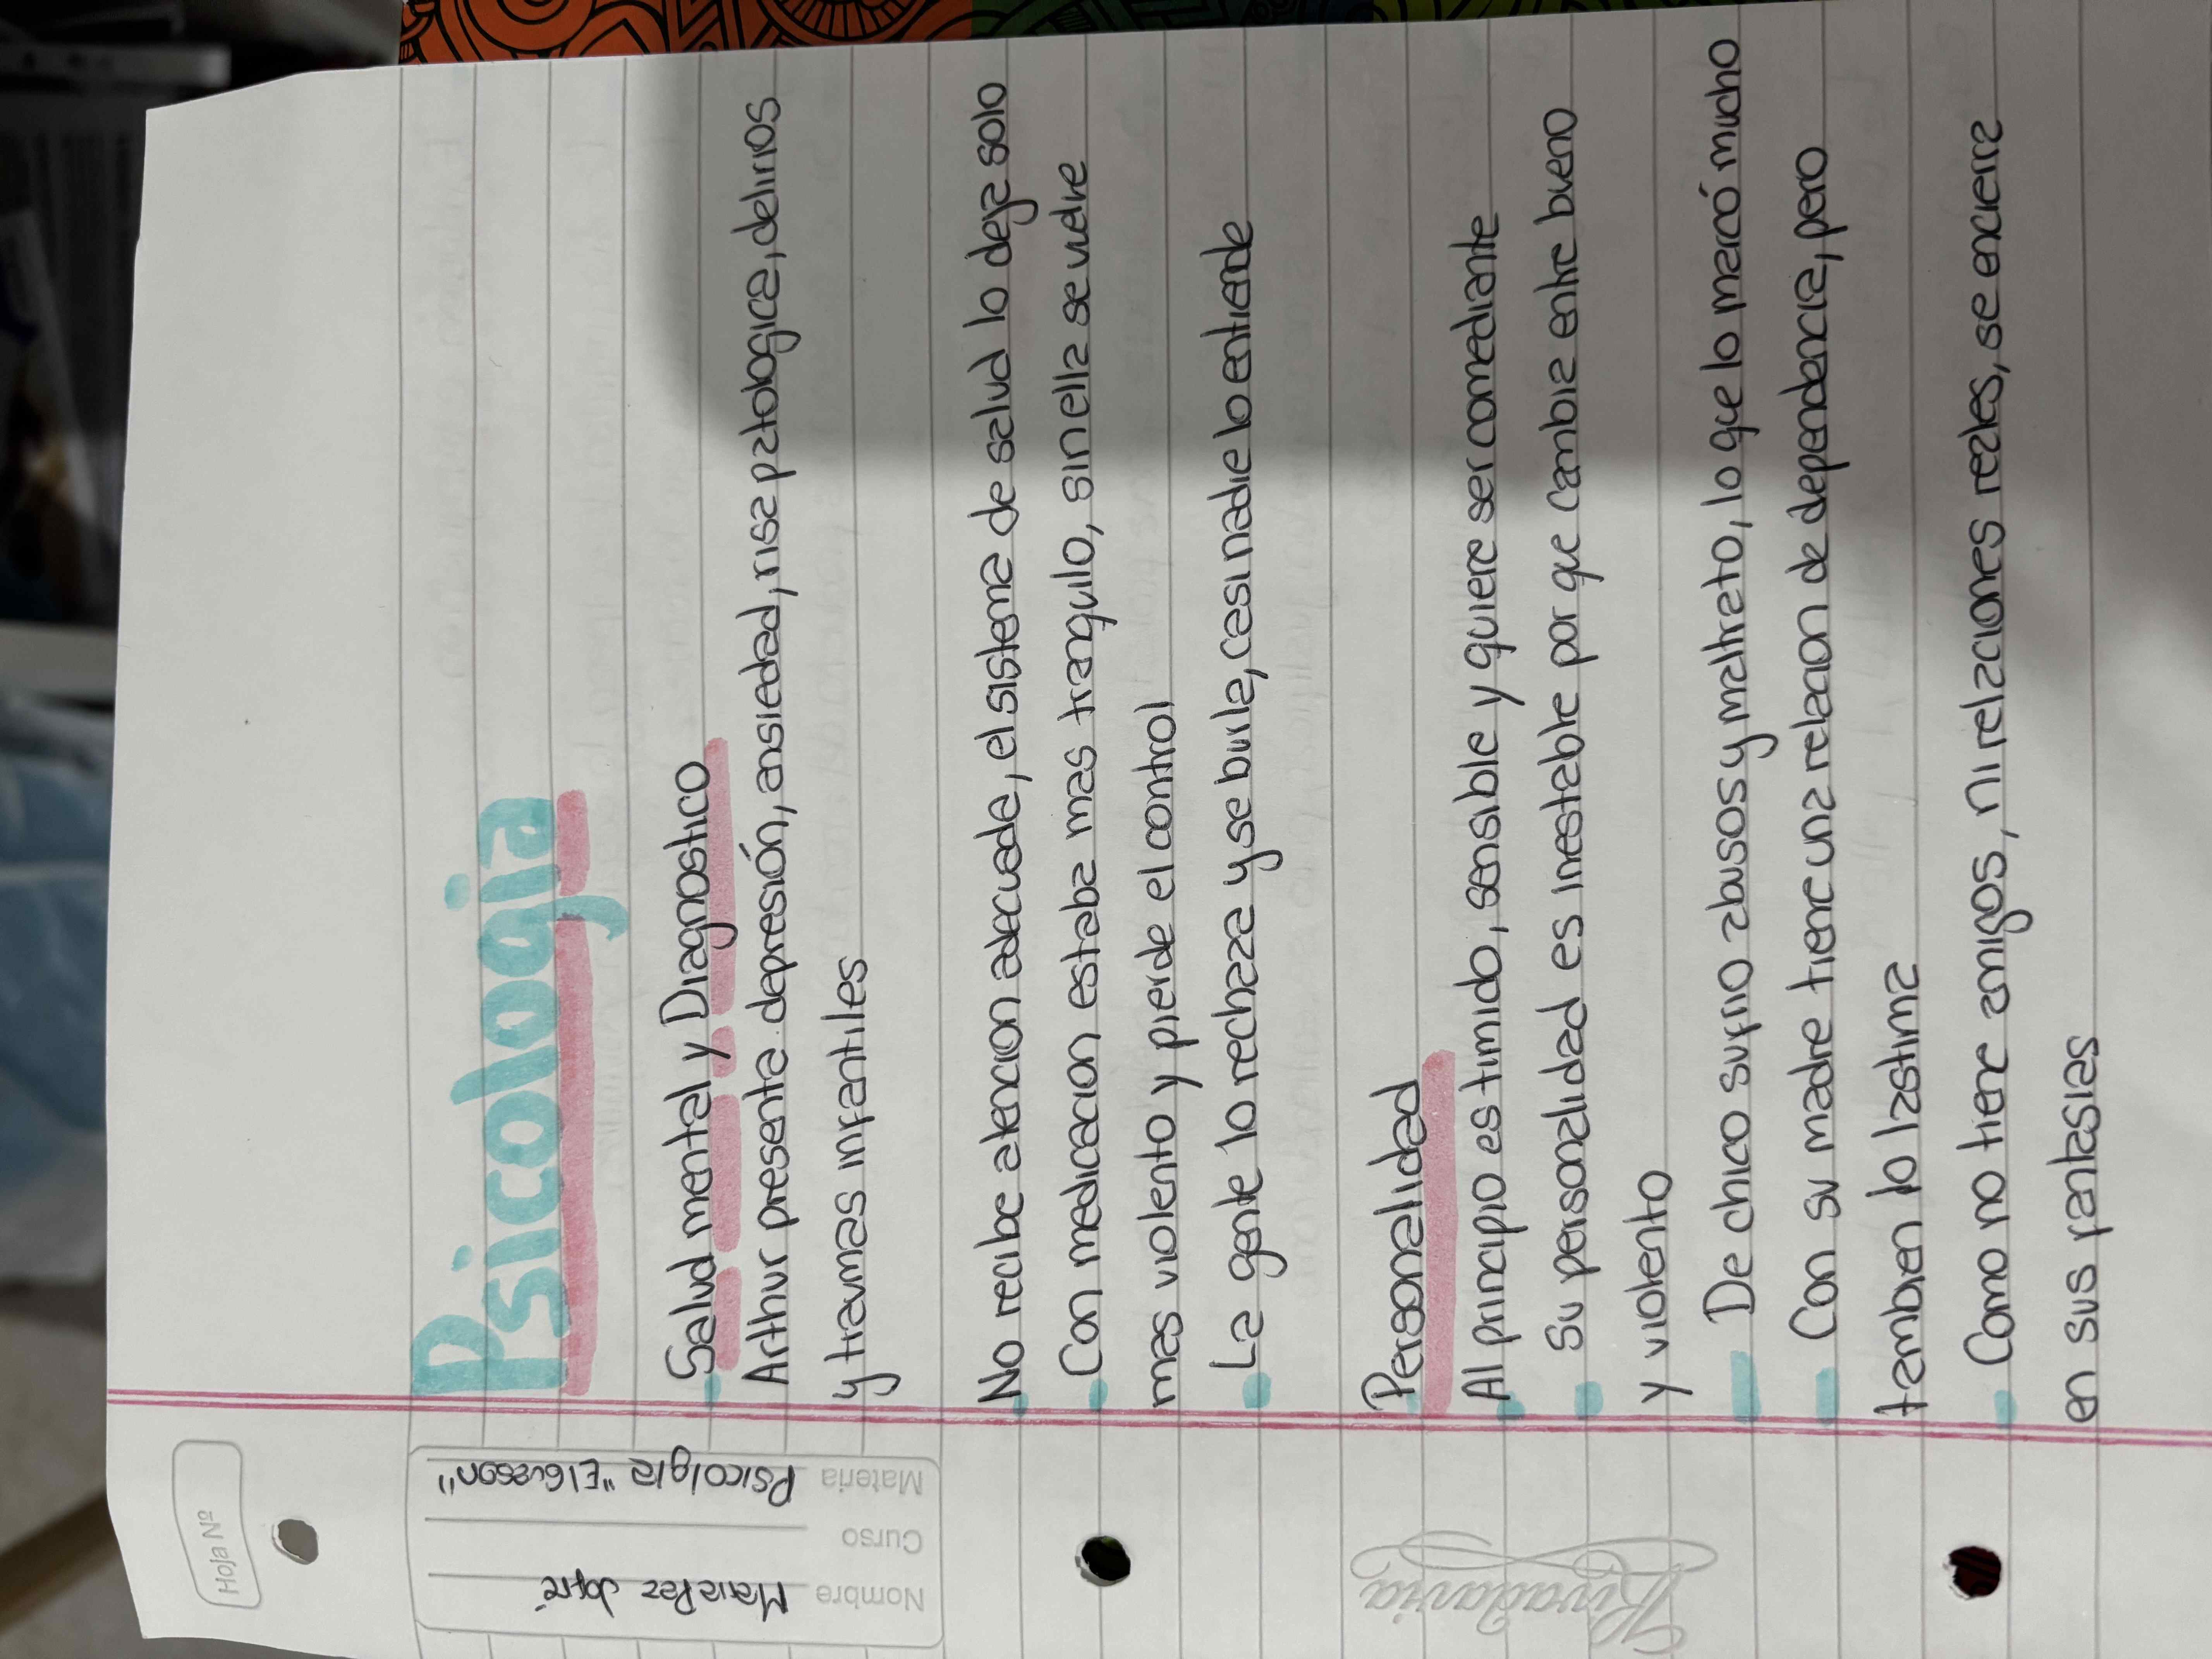 Hoja Nº
Nombre Maria Paz Jofré
Curso
Materia Psicolgia "El Guason"
Rivadavia
Psicologia
Salud mental y Diagnostico
Arthur presenta depresión, ansiedad, risa patologica, delirios
y traumas infantiles
No recibe atencion adecuada, el sistema de salud lo deja solo
Con medicacion estaba mas tranquilo, sin ella se vuelve
mas violento y pierde el control
La gente lo rechaza y se burla, casi nadie lo entiende
Personalidad
Al principio es timido, sensible y quiere ser comediante
Su personalidad es inestable por que cambia entre bueno
y violento
De chico sufrio abusos y maltrato, lo que lo marcó mucho
Con su madre tiene una relacion de dependencia, pero
tambien lo lastima
Como no tiene amigos, ni relaciones reales, se encierra
en sus fantasias